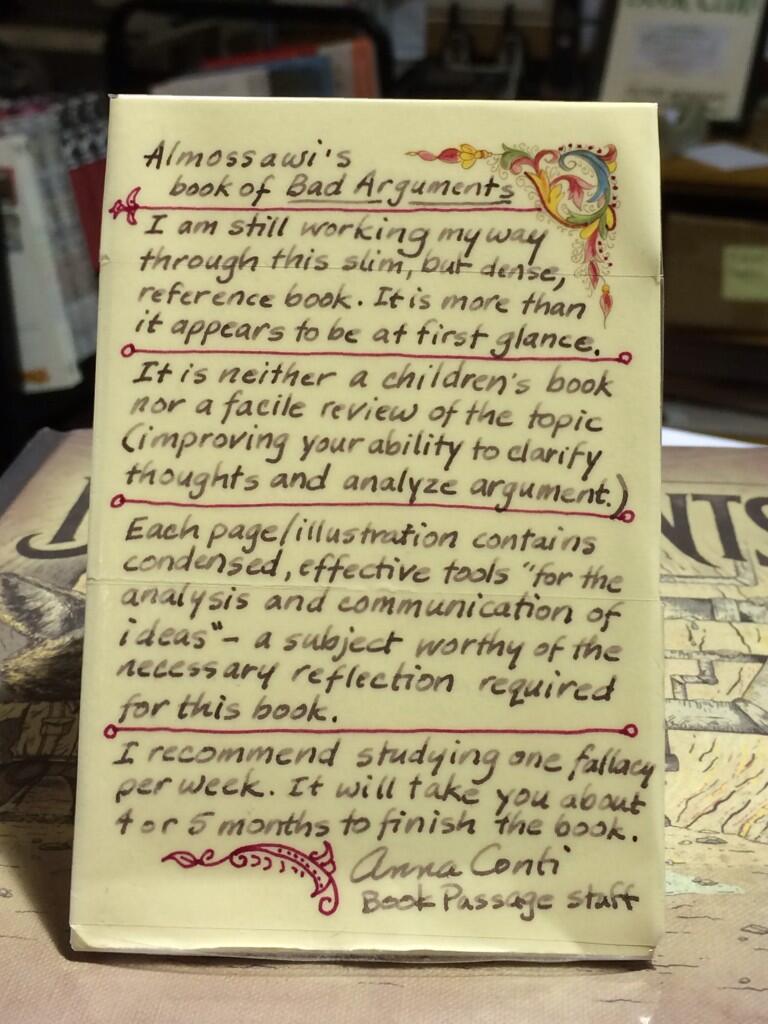 Almossawi's
book of Bad Arguments
I am still working my way
through this slim, but dense,
reference book. It is more than
it appears to be at first glance.
It is neither a children's book
nor a facile review of the topic
(improving your ability to clarify
thoughts and analyze argument.)
Each page/illustration contains
condensed, effective tools "for the
analysis and communication of
ideas" - a subject worthy of the
necessary reflection required
for this book.
I recommend studying one fallacy
per week. It will take you about
4 or 5 months to finish the book.
Anna Conti
Book Passage staff
NTS